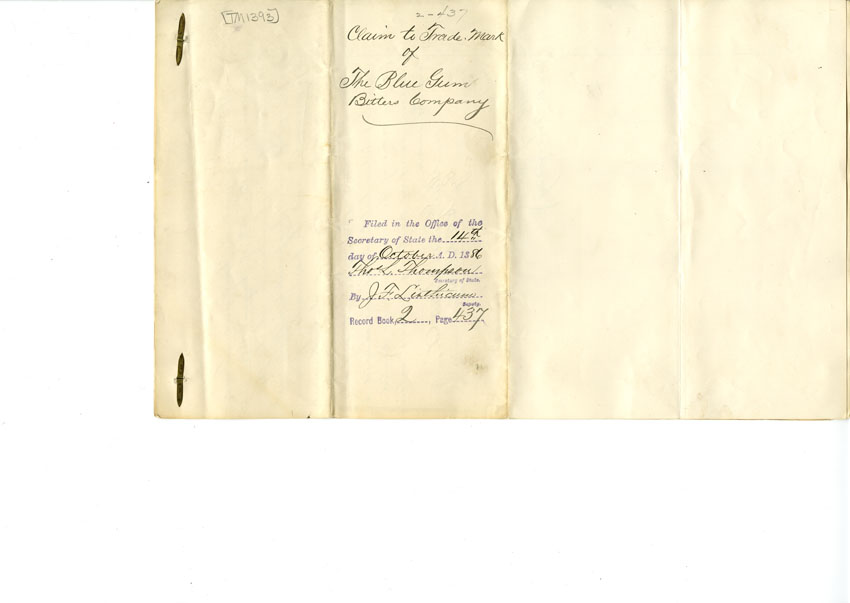 [TM1393]
2-437
Claim to Trade-Mark
of
The Blue Gum
Bitters Company
Filed in the Office of the
Secretary of State the 14th
day of October A. D. 1886
Thos L. Thompson
Secretary of State.
By J F Linthicum
Deputy.
Record Book 2, Page 437